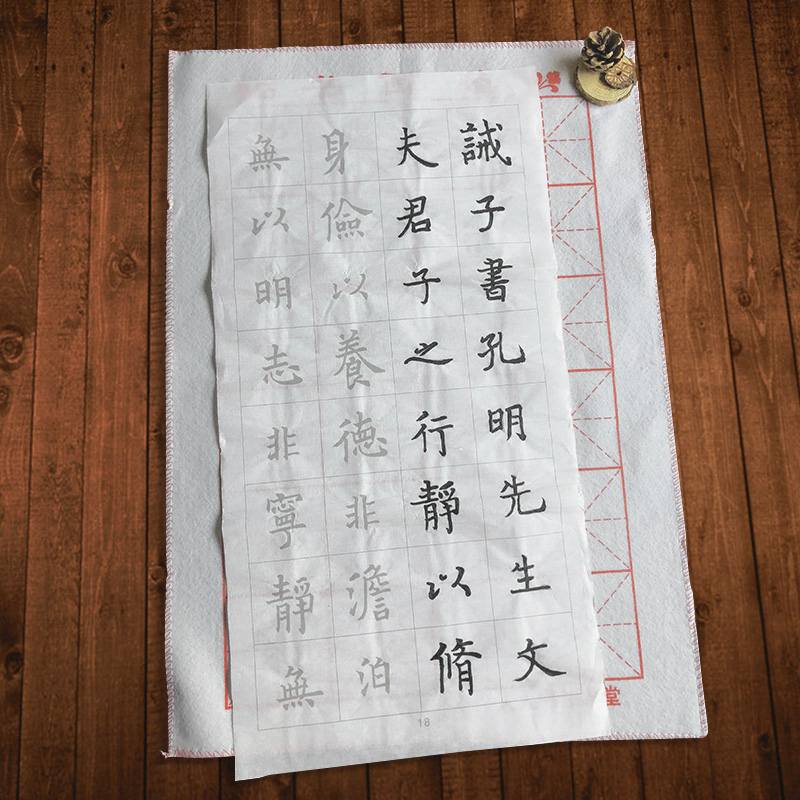 誡子書孔明先生文
夫君子之行靜以脩
身儉以養德非澹泊
無以明志非寧靜無
18
堂